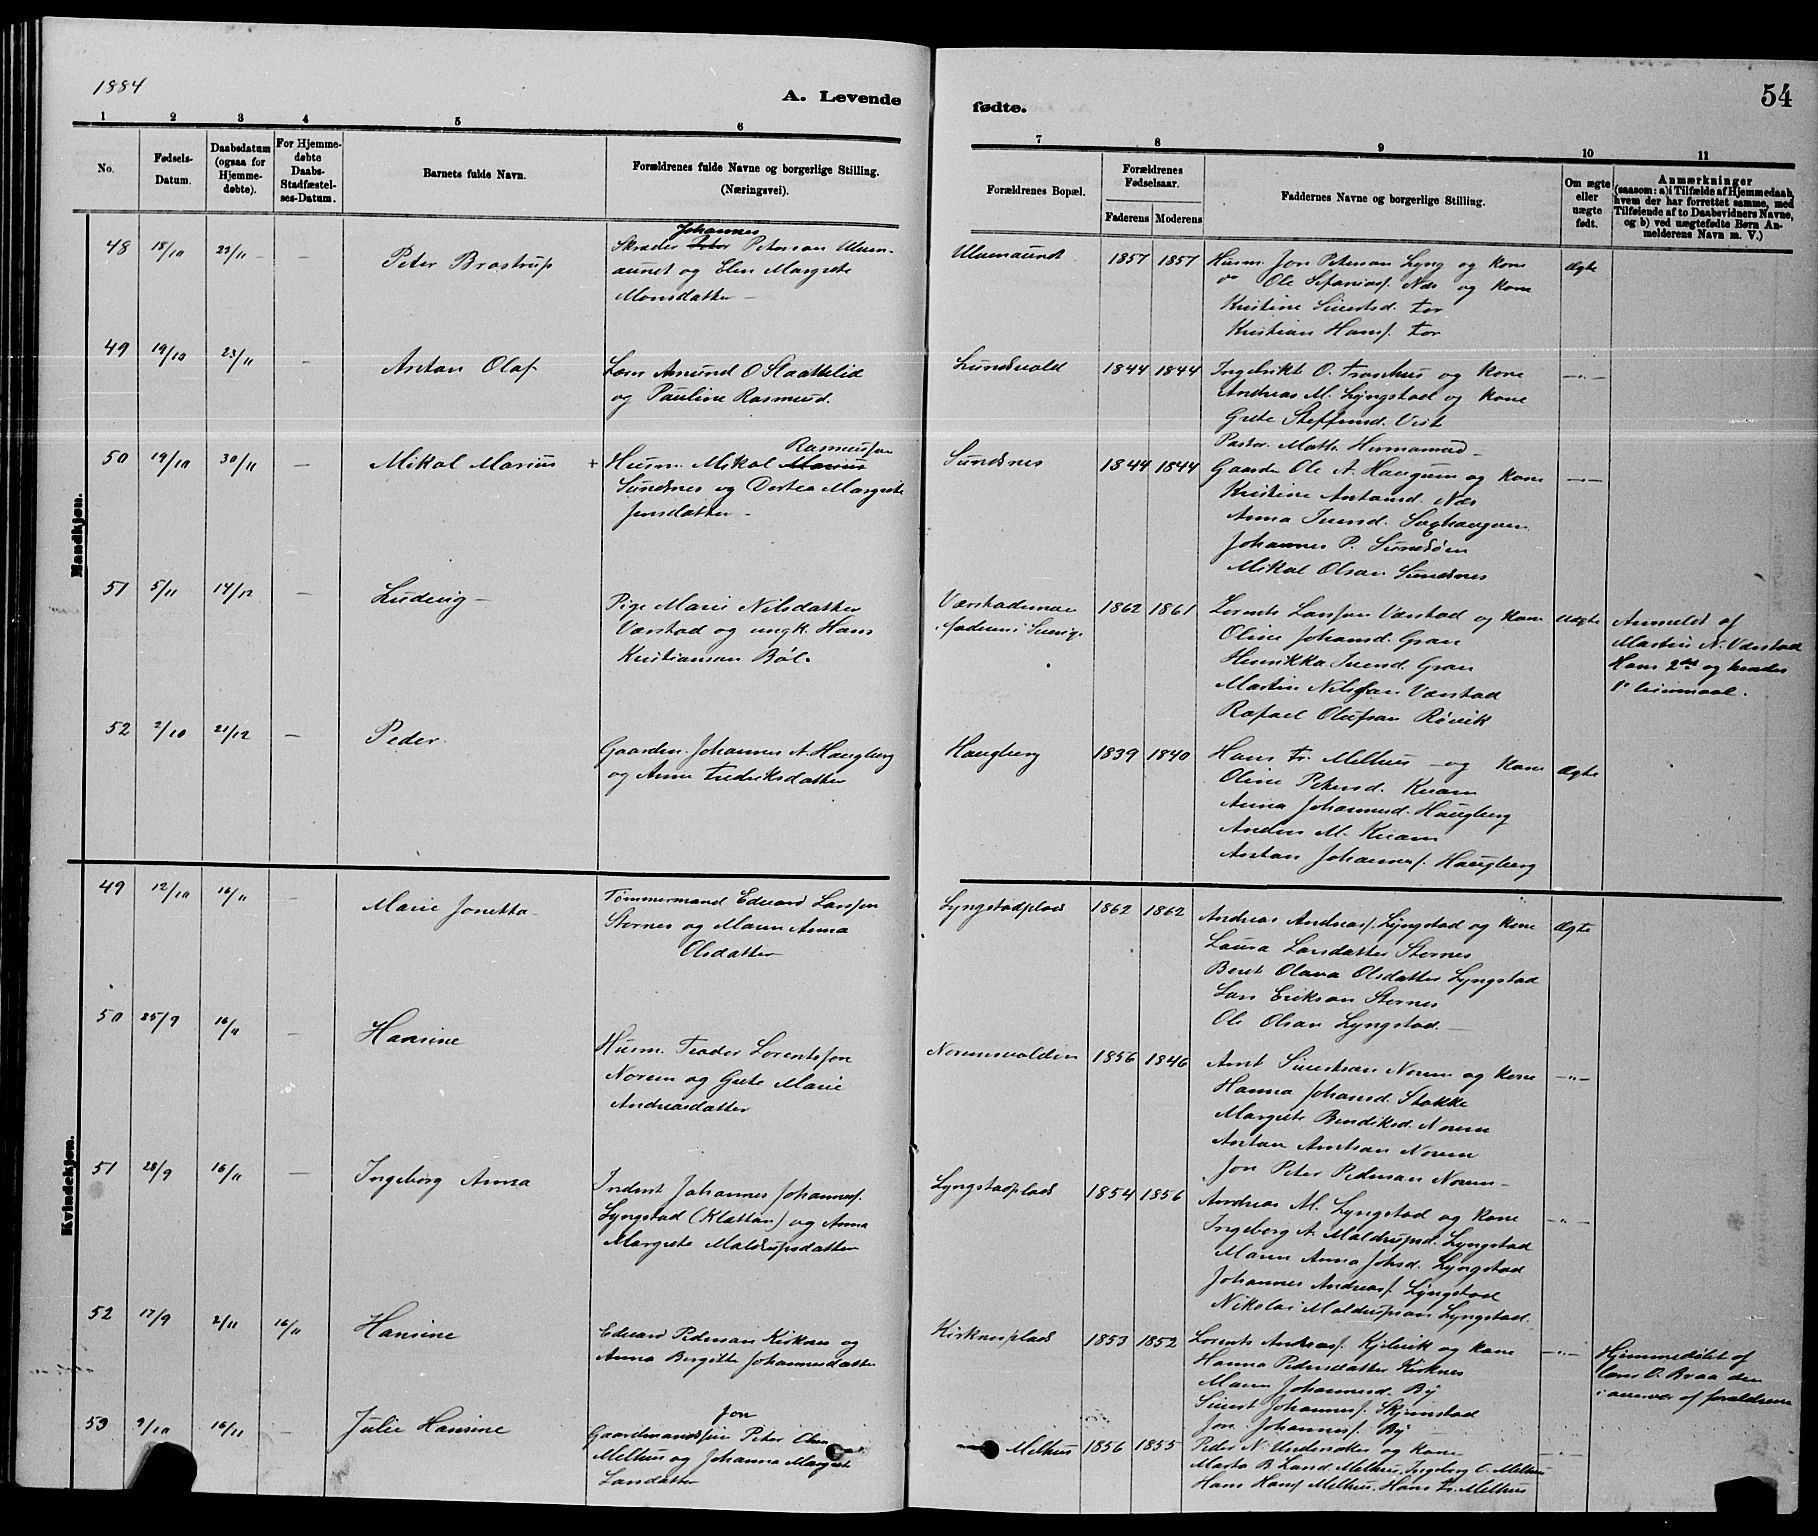 1884
A. Levende
fødte.
54
1 2 3 4 5 6 7 8 9 10 11
No.
Fødsels-
Datum.
Daabsdatum
(ogsaa for
Hjemme-
døbte).
For Hjemme-
døbte
Daabs-
Stadfæstel-
ses-Datum.
Barnets fulde Navn.
Forældrenes fulde Navne og borgerlige Stilling.
(Næringsvei).
Forældrenes Bopæl.
Forældrenes
Fødselsaar.
Faderens Moderens
Faddernes Navne og borgerlige Stilling.
Om ægte
eller
uægte
født.
Anmærkninger
(saasom: a) i Tilfælde af Hjemmedaab,
hvem der har forrettet samme, med
Tilføielse af to Daabsvidners Navne,
og b) ved uægtefødte Børn An-
melderens Navn m. V.)
Mandkjøn.
48 18/10 23/11 – –
Peter Brostrup
Johannes
Skræder Peterson
og Elen Margrete
Monsdatter –
1857 1857
Husm. Jon Peterson Lyng og kone
do Ole Nes og kone
Kristine Sivertsd. For
Kristian Hansf. For
Ægte
49 19/10 23/11 –
Anton Olaf
Amund O Slaattelid
og Pauline Rasmusd.
Lundsvald
1844 1844
Ingebrikt O. og kone
Andreas M. Lyngstad og kone
Grete Steffensd. Vist
Pastor. Math. Hermanrud –
– " –
50 19/10 30/11 –
Mikal Marius
Rasmussen
+ Husm. Mikal Marius
Sundsnes og Dortea Margrete
Jensdatter –
Sundsnes
1844 1844
Gaardm Ole A. Haugum og kone
Kristine Antonsd. Nes
Anna Iversd.
Johannes P. Sundsøen
Mikal Olson Sundsnes
– " –
51 5/11 14/12 –
Ludvig –
Pige Marie Nilsdatter
Værstad og ungk. Hans
Kristiansen Böl.
Moderen i Sverige
1862 1861
Lorents Larssen Værstad og kone
Oline Johansd. Gran
Henrikka Iversd. Gran
Martin Nilssen Værstad
Rafael Olufsen Røvik
Uægte
Anmeldt af
Martin N. Værstad
Hans 2det og hendes
1ste leiermaal.
52 2/10 21/12 –
Peder.
Gaardm. Johannes A. Haugberg
og Anne Fredriksdatter
Haugberg
1839 1840
Hans Fr. Melhus – og kone
Oline Petersd. Kvam
Anna Johannesd. Haugberg
Anders M. Kvam
Anton Johannesf. Haugberg
Ægte
Kvindekjøn.
49 12/10 16/11 –
Marie Jonetta –
Tømmermand Edvard Larssen
Stornes og Maren Anna
Olsdatter
Lyngstadplads
1862 1862
Andreas Andreasf. Lyngstad og kone
Laura Larsdatter Stornes
Beret Olava Olsdatter Lyngstad
Lars Erikson Stornes
Ole Olsen Lyngstad –
Ægte
50 25/9 16/11 –
Hansine
Husm. Teodor Lorentssen
Norem og Grete Marie
Andreasdatter
1856 1846
Arnt Sivertsen Norem og kone
Hanna Johansd. Stokke
Margrete Bendiksd. Norem
Anton Arntsen Norem
Jon Peter Pedersen Norem –
– " –
51 28/9 16/11 –
Ingeborg Anna
Inderst Johannes Johannesf.
Lyngstad (Kletten) og Anna
Margrete Maldrupsdatter
Lyngstadplads
1854 1856
Andreas M. Lyngstad og kone
Ingeborg A. Maldrupsd. Lyngstad
Maren Anna Johsd. Lyngstad
Johannes Andreasf. Lyngstad
Nikolai Maldrupson Lyngstad.
– " –
52 17/9 2/11 16/11
Hansine
Edvard Pederson Kirknes og
Anna Bergitte Johannesdatter
Kirknesplads
1853 1852
Lorents Andreasf. Kjelvik og kone
Hanna Pedersdatter Kirknes
Maren Johannesd. By
Sivert Johannesf. Skjemstad
Jon Johannesf. By
– " –
Hjemmedøbt af
Hans O. Braa den
i nærvær af forældrene
53 9/10 16/11
Julie Hansine
Jon
Gaardmandssøn Peter Olsen
Melhus og Johanna Margrete
Larsdatter
Melhus
1856 1855
Peder N. og kone
Marta B. Melhus, Ingeborg O. Melhus
Hans Hansf Melhus, Hans Fr. Melhus
– " –